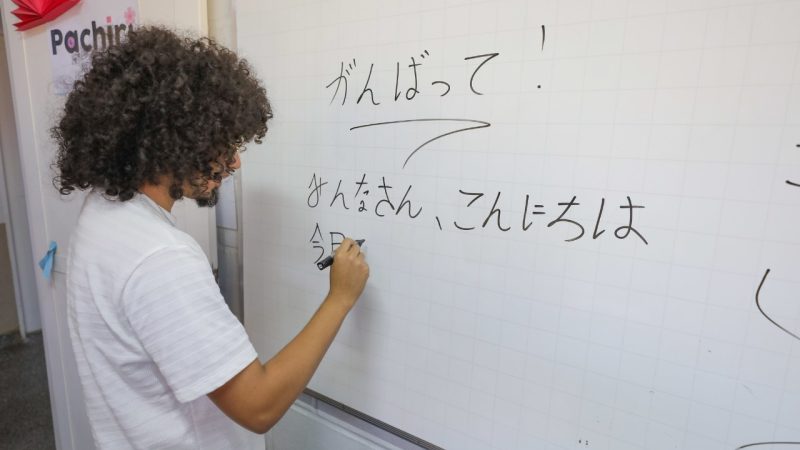 Pachir
がんばって!
みんなさん、こんにちは
今日